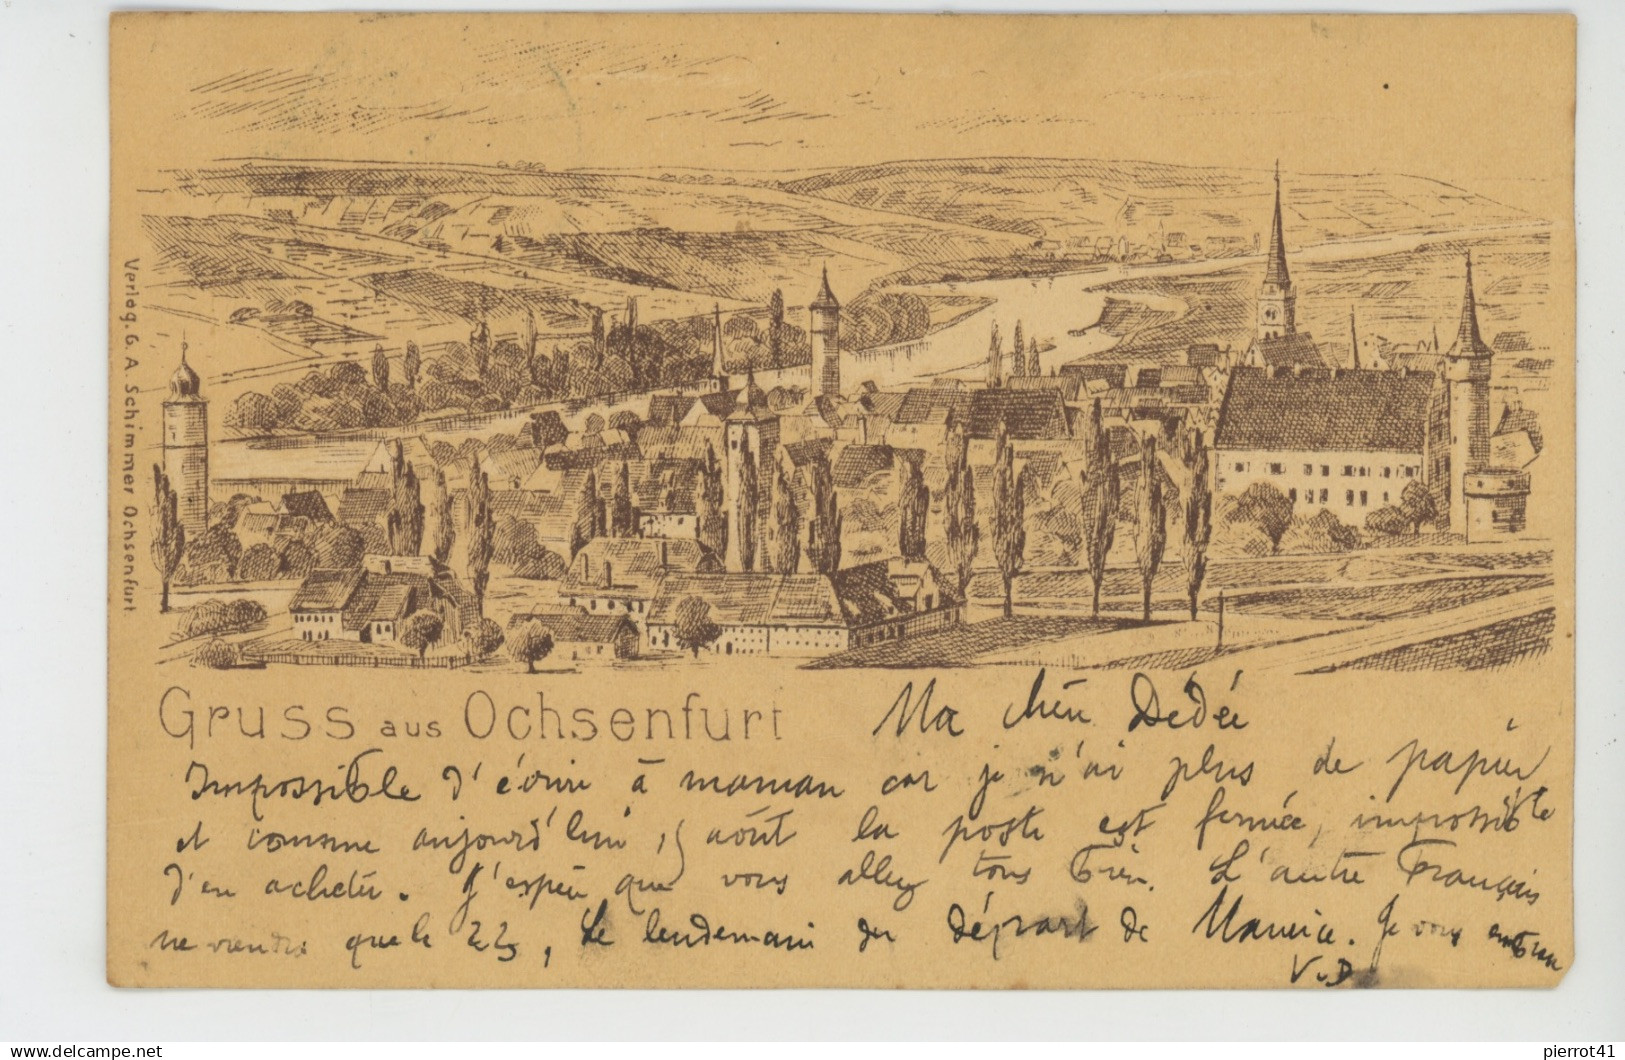 Verlag. G. A Schimmer Ochsenfurt.
Gruss aus Ochsenfurt
Ma chère Dédée
Impossible d'écrire à maman car je n'ai plus de papier
et comme aujourd'hui 15 août la poste est fermée, impossible
d'en acheter. J'espère que vous allez tous bien. L'autre Français
ne viendra que le 23, le lendemain du départ de Maurice. Je vous embrasse
V. D
delcampe.net
pierrot41